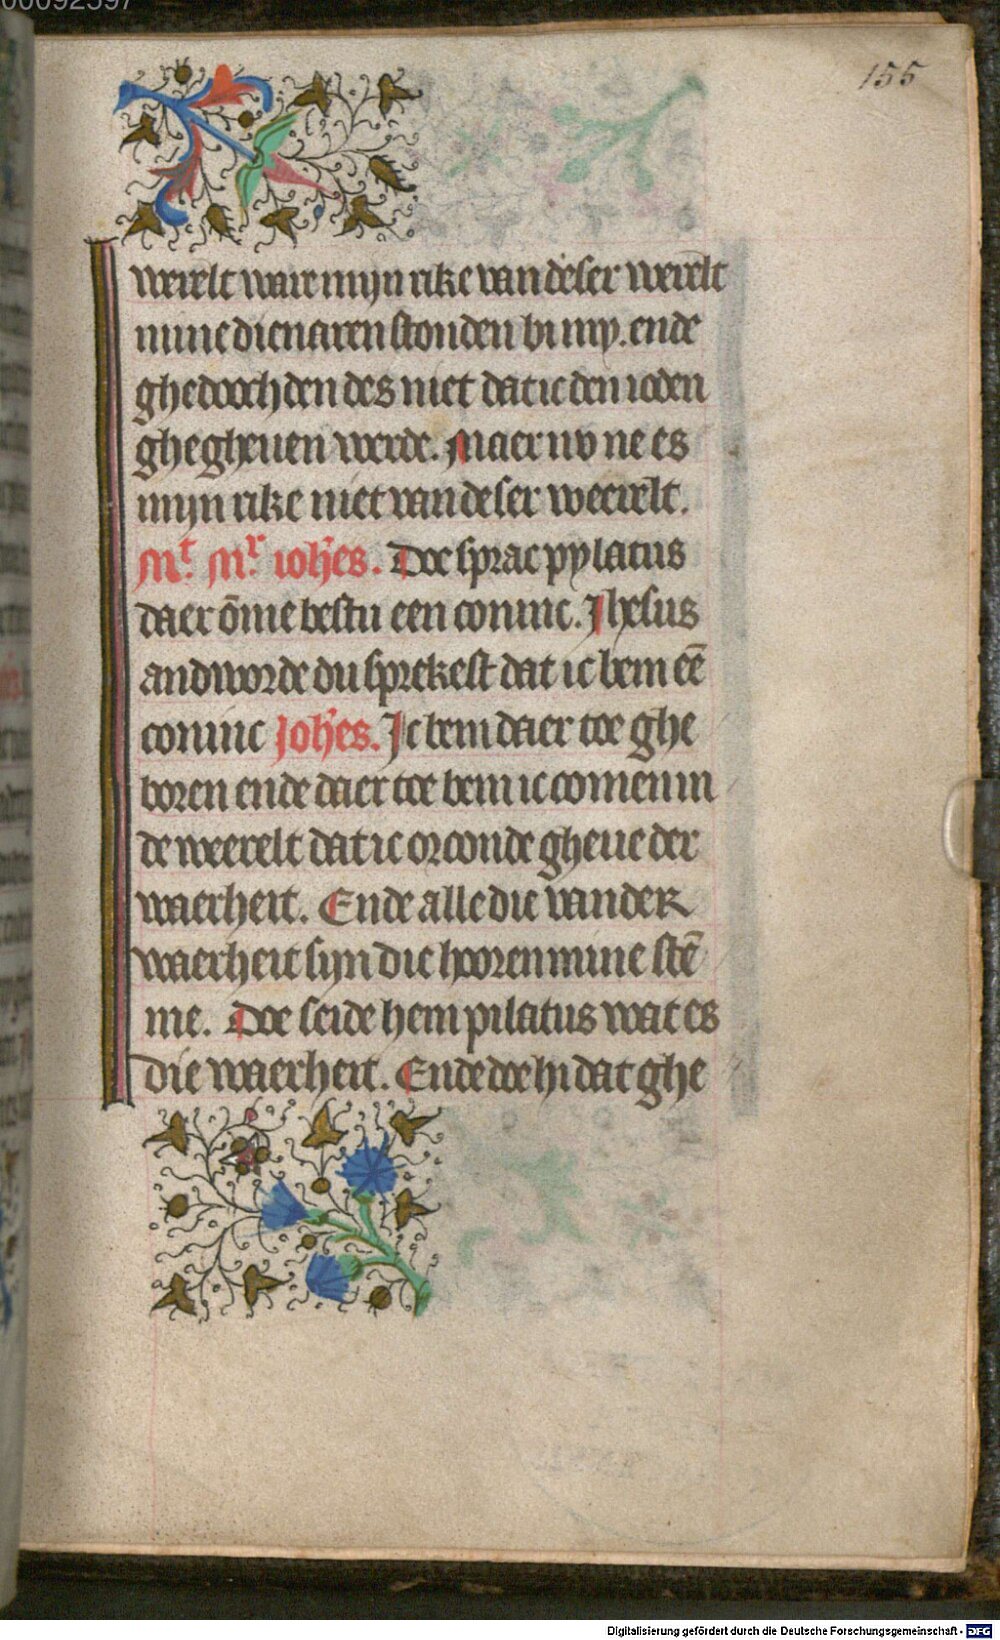 00092597
155
werelt waire mijn rike van deser werelt
mine dienaren stonden bi my. ende
ghedoochden des niet dat ic den ioden
ghegheuen werde. Maer nv ne es
mijn rike niet van deser weerelt.
Mt. Mr. ioh̄es. Doe sprac pylatus
daer ōme bestu een coninc. Jhesus
andworde du sprekest dat ic bem eē
coninc Joh̄es. Jc bem daer toe ghe
boren ende daer toe bem ic comen in
de weerelt dat ic orconde gheue der
waerheit. Ende alle die vander
waerheit sijn die hooren mine stē
me. Doe seide hem pilatus wat es
die waerheit. Ende doe hi dat ghe
Digitalisierung gefördert durch die Deutsche Forschungsgemeinschaft - DFG